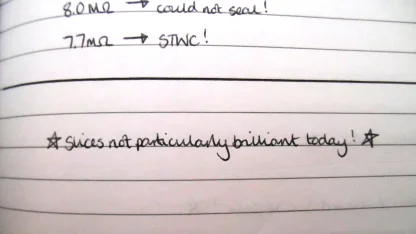 8.0MΩ → could not seal!
7.7MΩ → STWC!
☆ Slices not particularly brilliant today! ☆